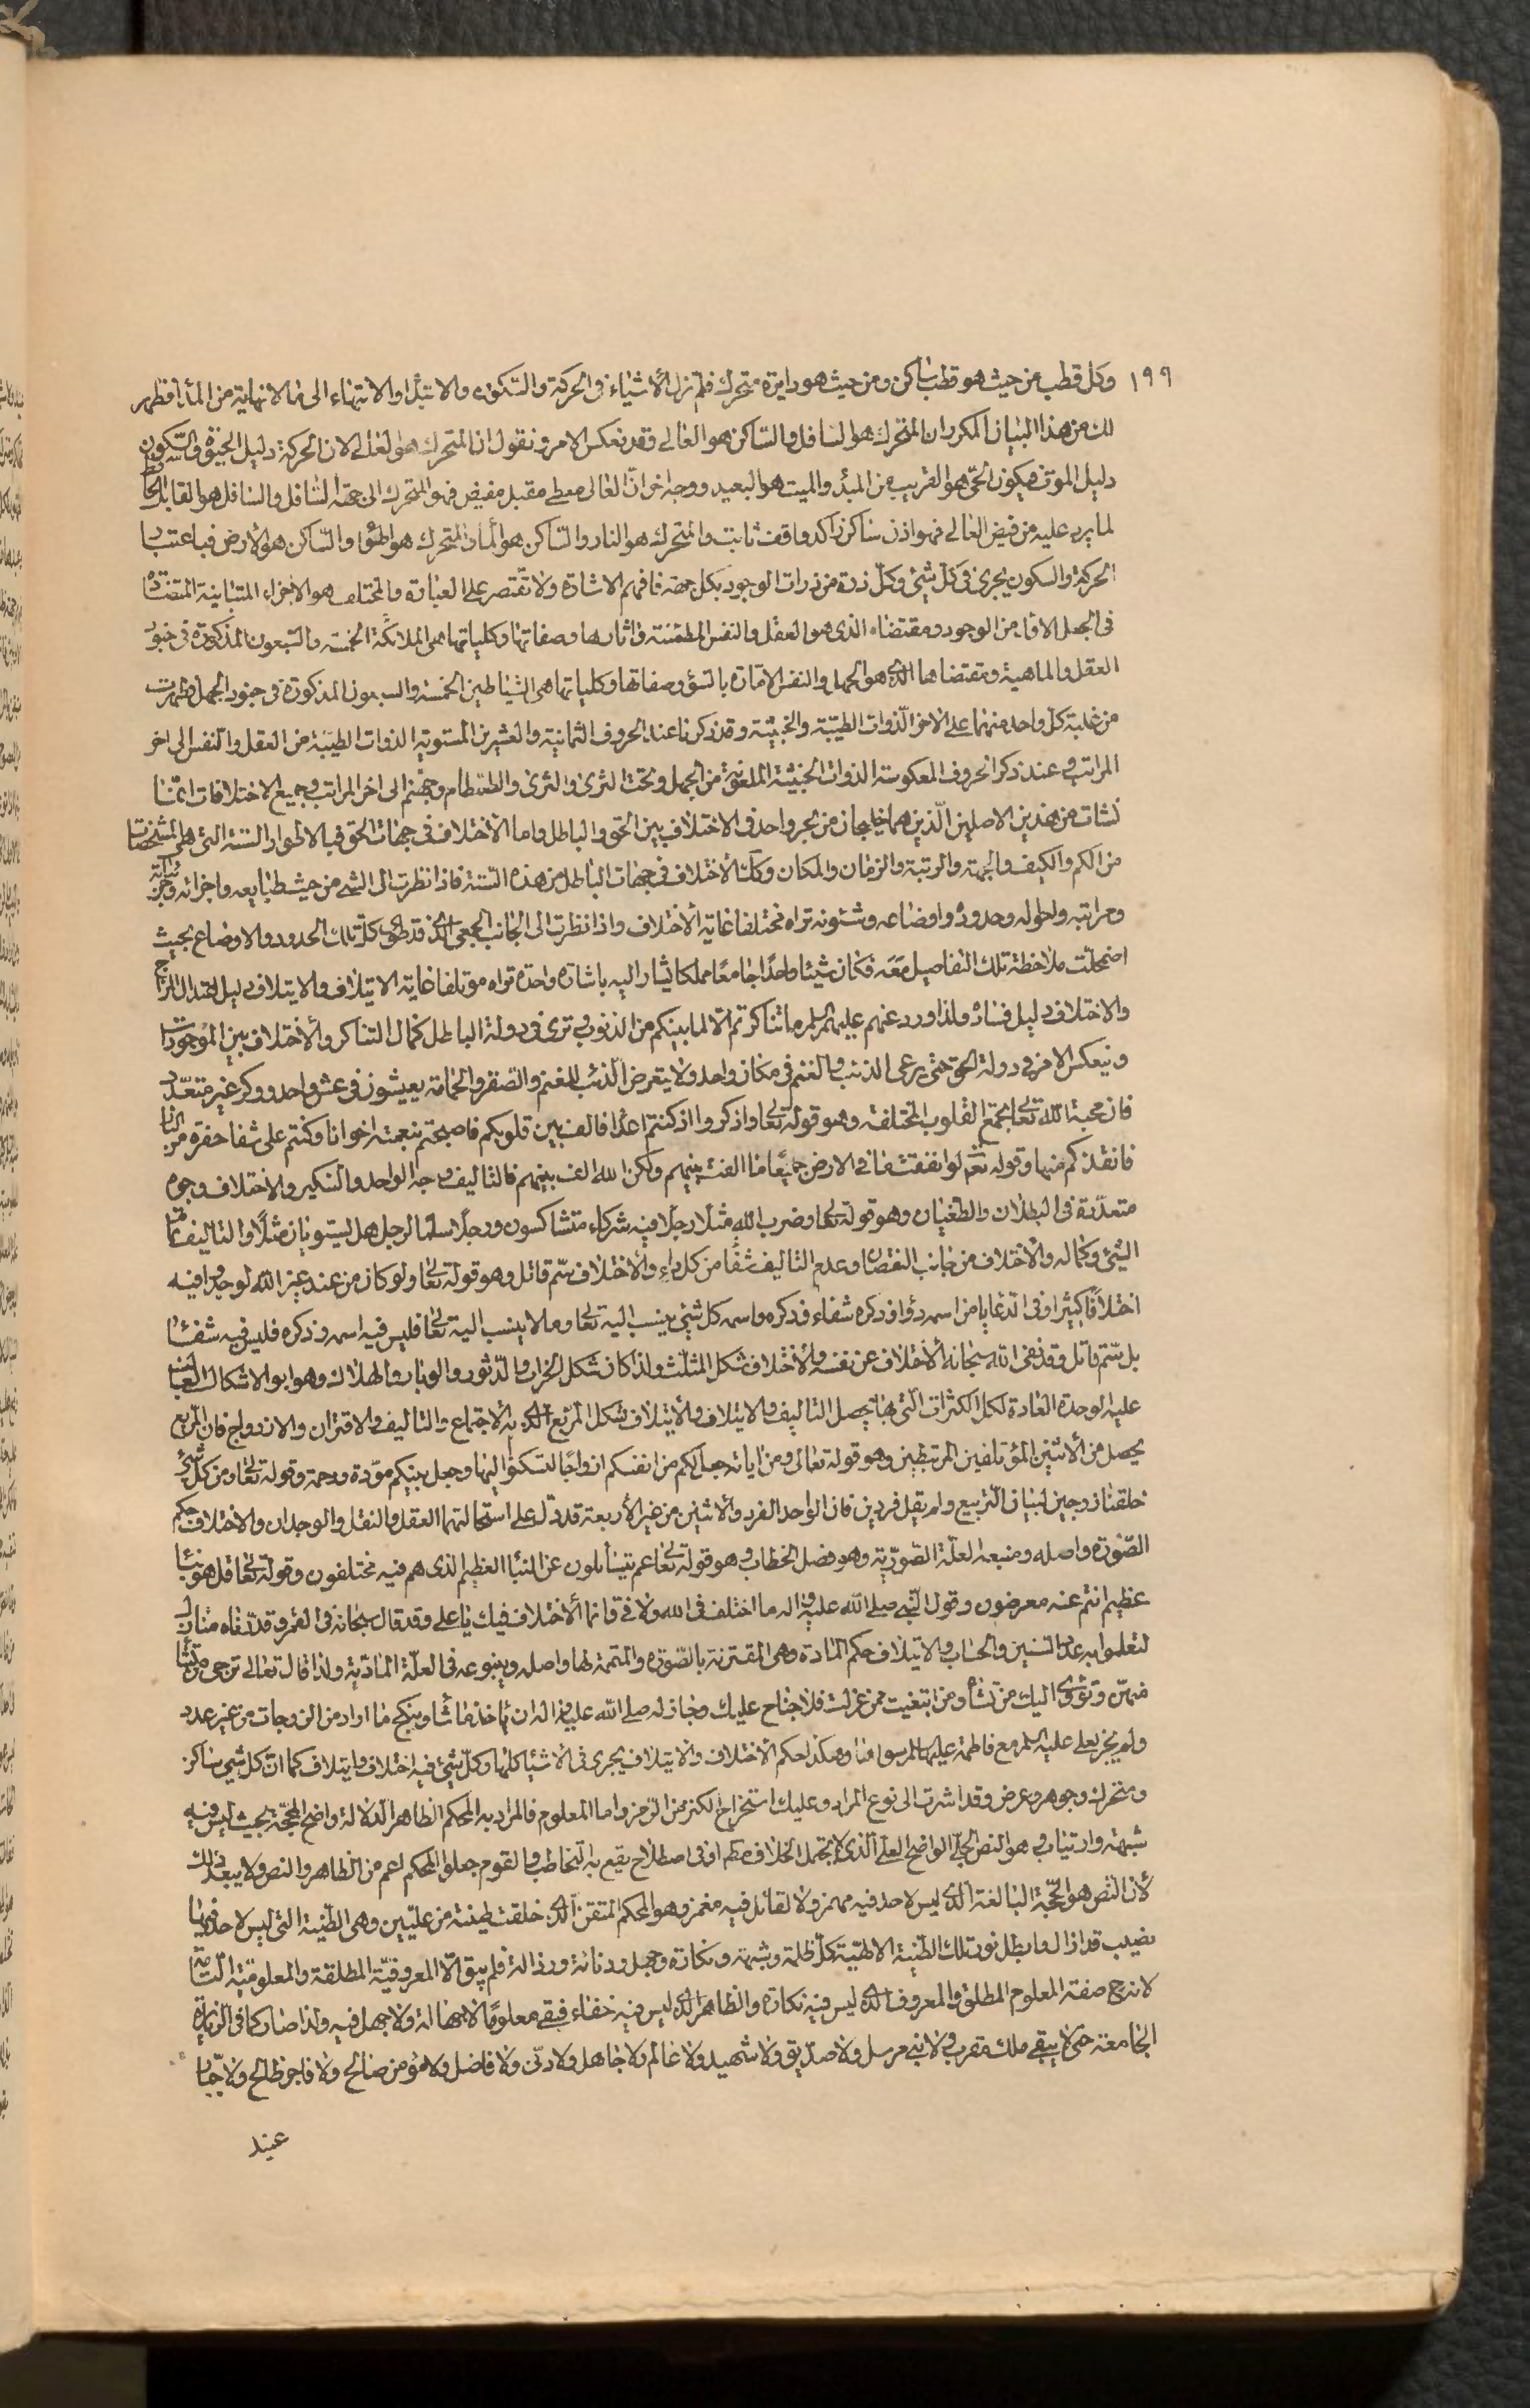 ١٩٩ وكل قطب من حيث هو قطب ساكن ومن حيث هو دايرة متحرك فلم تزل الأشياء في الحركة والسكون والابتداء والانتهاء الى ما لا نهاية من المدا فظهر
لك من هذا البيان المكرر ان المتحرك هو السافل والساكن هو العالي وقد نعكس الامر ونقول ان المتحرك هو العالي لان الحركة دليل الحيوة والسكون
دليل الموت فيكون الحي هو القريب من المبدء والميت هو البعيد ووجه اخر ان العالي معطي مقبل مفيض فهو المتحرك الى جهة السافل والسافل هو القابل
لما يرد عليه من فيض العالي فهو اذن ساكن راكد واقف ثابت والمتحرك هو النار والساكن هو الماء والمتحرك هو الهواء والساكن هو الأرض فباعتبار
الحركة والسكون يجري في كل شيء وكل ذرة من ذرات الوجود بكل جهة فافهم الاشارة ولا تقتصر على العبارة والمختلف هو الاجزاء المتباينة المتضادة
في الجعل الأول من الوجود ومقتضاه الذي هو العقل والنفس المطمئنة واثارها وصفاتها وكلياتها هي الملائكة الخمسة والسبعون المذكورة في جنود
العقل والماهية ومقتضاها الذي هو الجهل والنفس الامارة بالسوء وصفاتها وكلياتها هي الشياطين الخمسة والسبعون المذكورة في جنود الجهل فظهرت
من غلبة كل واحد منهما على الاخر الذوات الطيبة والخبيثة وقد ذكرنا عند الحروف الثمانية والعشرين المستوية الذوات الطيبة من العقل والنفس الى اخر
المراتب وعند ذكر الحروف المعكوسة الذوات الخبيثة الملعونة من الجهل وتحت الثرى والثرى والطمطام وجهنم الى اخر المراتب وجميع الاختلافات انما
نشات من هذين الاصلين الذين هما خليجان من بحر واحد في الاختلاف بين الحق والباطل واما الاختلاف في جهات الحق فبالاطوار الستة التي هي المشخصات
من الكم والكيف والجهة والرتبة والزمان والمكان وكذا الأختلاف في جهات الباطل من هذه الستة فاذا نظرت الى الشيء من حيث طبايعه واجزائه وجزئياته
ومراتبه واحواله وحدوده واوضاعه وشئونه تراه مختلفا غاية الأختلاف واذا نظرت الى الجانب الجمعي الذي قد طوى كل تلك الحدود والاوضاع بحيث
اضمحلت ملاحظة تلك التفاصيل معه فكان شيئا واحدا جامعا مملكا يشار اليه باشارة واحدة تراه موتلفا غاية الايتلاف والايتلاف دليل اعتدال المزاج
والاختلاف دليل فساده ولذا ورد عنهم عليهم السلم ما تناكرتم الا لما بينكم من الذنوب وترى في دولة الباطل كمال التناكر والأختلاف بين الموجودات
وينعكس الامر في دولة الحق حتى يرعى الذئب والغنم في مكان واحد ولا يتعرض الذئب للغنم والصقر والحمامة يعيشون في عش واحد ووكر غير متعدد
فان محبة الله تعالى تجمع القلوب المختلفة وهو قوله تعالى واذكروا اذ كنتم اعداء فالف بين قلوبكم فاصبحتم بنعمته اخوانا وكنتم على شفا حفرة من النار
فانقذكم منها وقوله تعالى لو انفقت ما في الارض جميعا ما الفت بينهم ولكن الله الف بينهم فالتاليف وجه الواحد والتنكير والاختلاف وجوه
متعددة في البطلان والطغيان وهو قوله تعالى وضرب الله مثلا رجلا فيه شركاء متشاكسون ورجلا سلما لرجل هل يستويان مثلا والتاليف تمام
الشيء وكماله والأختلاف من جانب النقصان وعدم التاليف شفاء من كل داء والأختلاف سم قاتل وهو قوله تعالى ولو كان من عند غير الله لوجدوا فيه
اختلافا كثيرا وفي الدعا يا من اسمه دواء وذكره شفاء فذكره واسمه كل شيء ينسب اليه تعالى وما لا ينسب اليه تعالى فليس فيه اسمه وذكره فليس فيه شفاء
بل سم قاتل وقد نفى الله سبحانه الأختلاف عن نفسه والأختلاف شكل المثلث ولذا كان شكل الخراب والدثور والوبار والهلاك وهو ابو الاشكال
عليه الوحدة العادة لكل الكثرات التي بها يحصل التاليف والايتلاف والأيتلاف شكل المربع الذي به الاجتماع والتاليف والاقتران والازدواج فان المربع
يحصل من الأثنين المؤتلفين المرتبطين وهو قوله تعالى ومن اياته جعل لكم من انفسكم ازواجا لتسكنوا اليها وجعل بينكم مودة ورحمة وقوله تعالى ومن كل شيء
خلقنا زوجين لبيان التربيع ولم يقل فردين فان الواحد الفرد والأثنين من غير الأربعة قد دل على استحالتهما العقل والنقل والوجدان والاختلاف حكم
الصورة واصله ومنبعه العلة الصورية وهو فصل الخطاب وهو قوله تعالى عم يتسائلون عن النبأ العظيم الذي هم فيه مختلفون وقوله تعالى قل هو نبأ
عظيم انتم عنه معرضون وقول النبي صلى الله عليه واله ما اختلف في الله ولا في وانما الأختلاف فيك يا علي وقد قال سبحانه في القمر وقدرناه منازل
لتعلموا به عدد السنين والحساب والايتلاف حكم المادة وهي المقترنة بالصورة والمتممة لها واصله وينبوعه في العلة المادية ولذا قال تعالى ترجي من تشاء
منهن وتؤوي اليك من تشاء ومن ابتغيت ممن عزلت فلا جناح عليك وجاز له صلى الله عليه واله ان ياخذ ما شاء وينكح ما اراد من الزوجات من غير عدد
ولم يجز لعلي عليه السلم مع فاطمة عليها السلم سواها وهكذا حكم الأختلاف والايتلاف يجري في الاشياء كلها وكل شيء فيه اختلاف وايتلاف كما ان كل شيء ساكن
ومتحرك وجوهر وعرض وقد اشرت الى نوع المراد وعليك استخراج الكنز من الرمز واما المعلوم فالمراد به المحكم الظاهر الدلالة واضح المحجة بحيث ليس فيه
شبهة وارتياب وهو النص الجلي الواضح العلي الذي لا يحتمل الخلاف في اصطلاح يقع به التخاطب والقوم جعلوا المحكم اعم من الظاهر والنص ولا يبعد ذلك
لأن النص هو الحجة البالغة الذي ليس لاحد فيه مهمز ولا لقائل فيه مغمز وهو المحكم المتقن الذي خلقت طينته من عليين وهي الطينة التي ليس لاحد فيها
نصيب قد ازال وابطل نور تلك الطينة الالهية كل ظلمة وشبهة ونكارة وجهل ودنائة ورذالة فلم يبق الا المعروفية المطلقة والمعلومية التامة
صفة المعلوم المطلق والمعروف الذي ليس فيه نكارة والظاهر الذي ليس فيه خفاء فبقى معلوما لا جهالة ولا جهل فيه ولذا صار كما في الزيارة
الجامعة حتى لا يبقى ملك مقرب ولا نبي مرسل ولا صديق ولا شهيد ولا عالم ولا جاهل ولا دني ولا فاضل ولا مؤمن صالح ولا فاجر طالح ولا جبار
عنيد